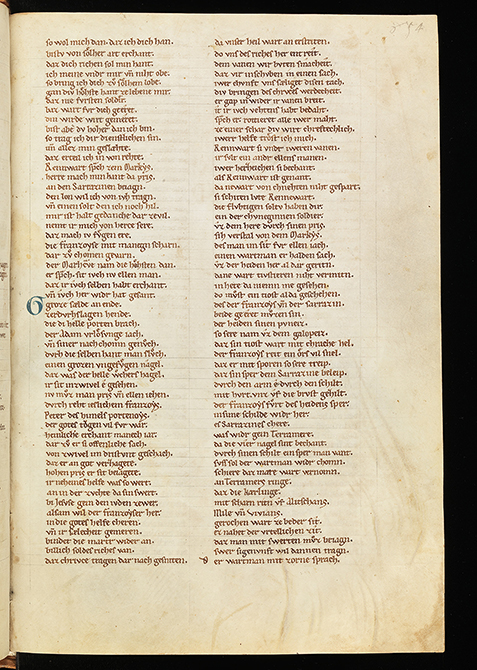 so wol mich dan. daz ich dich han.
bistv von solher art erchant.
daz dich richen sol min hant.
ich meine vndr mir vn niht obe.
so bring ich dich zv solhem lobe.
gan div hohste hant ze lebene mir.
daz nie fvrsten soldir.
daz wart fvr dich geeret.
din wirde wirt gemeret.
bist abe dv hoher dan ich bin.
so trag ich dir dienstlichen sin.
vn allez min geslahte.
daz erteil ich in von rehte.
Rennwart sph zem Markys.
herre mach min hant da pris.
an den Sarrazinen beiagn.
den lon wil ich von ivh tragn.
vn einen solt den ich noch hil.
mir ist halt gedanche dar ze vil.
nemt ir mich von herze sere.
daz mach iv fvgen ere.
die franzoyse mit manegn scharn.
daz zv chomen gevarn.
der Marhcys nam die hohsten dan.
er spch. sit ivch iv ellen man.
daz ir ivch selben habt erchant.
vn ivch her widr hat gesant.
Groze sælde an ende.
zerdvrhslagen hende.
die di helle porten brach.
der Adam vrlosvnge iach.
vn siner nach chomn genvch.
dvrh die selben hant man slvch.
einen grozen vngefvgen nagel.
daz was der helle wehers hagel.
ir sit vnzwivel e gesehen.
nv mvz man pris vn ellen iehen.
dvrch rehte ieslichem franzoys.
Peter des hvndes portenoys.
der gotes togen vil fvr war.
heinliche erchant manech iar.
daz zv er si offenliche sach.
von zwivel im dristvnt geschach.
daz er an got verzagete.
hohen pris er sit beiagete.
ir neheines helfe was so wert.
an in der zvehte da fin swert.
bi iesvse gein den ivden zewer.
alsam wil der franzoyser her.
in die gotes helfe cheren.
vn ir sælecheit gemeren.
bindet die marter wider an.
billich soldes riches van.
daz chrivce tragen dar nach gesniten.
da vnser heil wart an erstriten.
do vns des riches her entreit.
dem vanen wir bvten smacheit.
daz wir inschvben in einen sach.
swer chvnft vns sæliget disen tach.
div bringen des chrvces werdecheit.
er gap in wider ir vanen breit.
iewedr wch vehtens habe bedaht.
spch er rottieret alle iwer maht.
ze einer schar div wirt chreftechlich.
iwerr helfe trost ich mich.
Rennwart si vndr iweren vanen.
ir sult ein andr ellens manen.
iwer herzeichen si bechant.
als Rennwart ist genant.
da newart von chnehten niht gespart.
si schriten lvte Rennewart.
die flvhtigen soltv haben dir.
ein der chvneginnen soldier.
vz dem here dvrch sinen pris.
sich verstal von dem Markys.
des man im sit fvr ellen iach.
einen wartman er halden sach.
vz der heiden her al dar geritn.
dane wart tiostieren niht vermitn.
in here da niemn me gesehen.
do mvost ein tiost al da geschehen.
des der franzoys vn der sarrazin.
beide geeret mvezen sin.
der heiden sinen pvneiz.
so sere nam vz dem galopeiz.
daz sin tiost wart mit chrache hel.
der franzoys reit ein ors vil snel.
daz er mit sporen so sere treip.
daz sin sper dem Sarrazine beleip.
dvrch den arm vn dvrch den schilt.
mit hvrt. vnz vf die brvst gezilt.
der franzoys fvrt des heidens sper.
in sime schilde widr her.
es Sarrazines chere.
was widr gein Terramere.
da die vier nagel sint bechant.
dvrch sinen schilt ein sper man vant.
svs sol der wartman widr chomn.
schiere daz mære wart vernomn.
an Terramers ringe.
daz die karlinge.
mit scharn riten vf Alitschans.
Mile vn Vivians.
gerochen wart ze beder sit.
ez nahet der vrteilichen zit.
daz man mit swerten mvz beiagn.
swer sigenvnft wil dannen tragn.
er wartman mit zorne sprach.